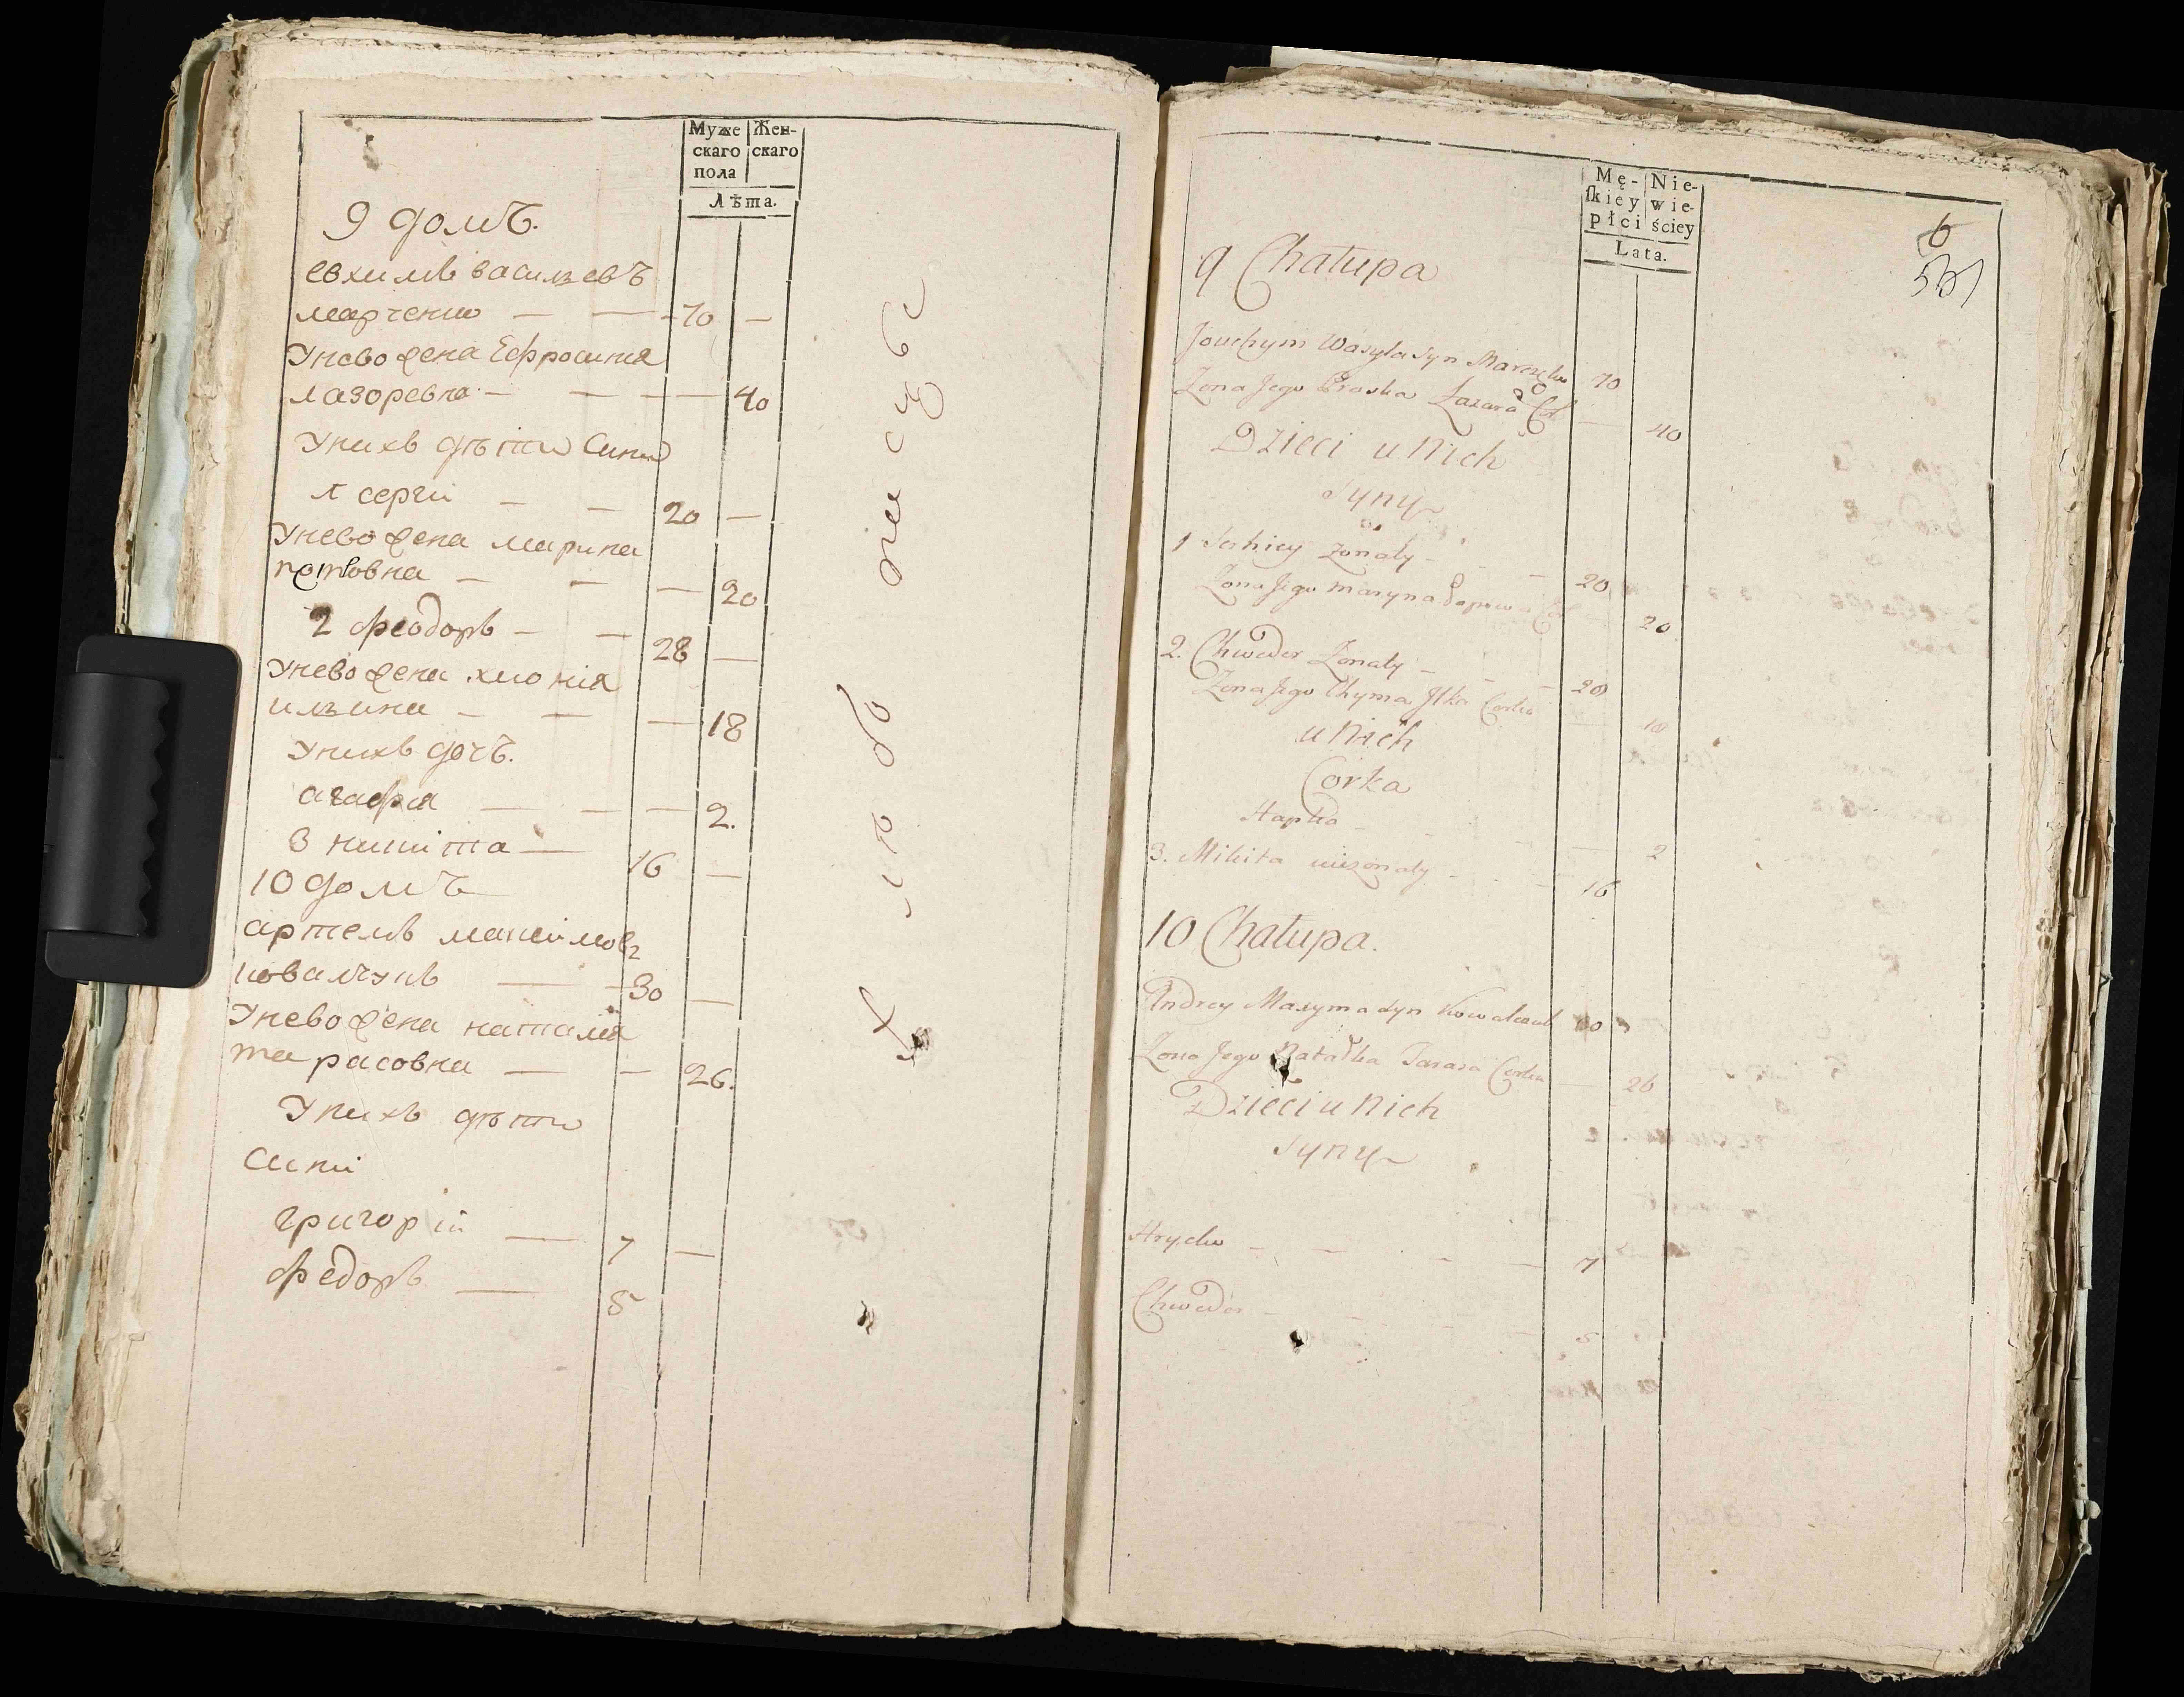 Муже Жен-
скаго скаго
пола
Лѣта.
9 домъ.
евхимъ васильевъ
марченко — — 70 —
Унево жена Ефросиния
лазоревна — — — — 40
Унихъ дѣти Сини
1 сергiй — — 20 —
Унево жена марина
— — — 20
2 феодоръ — — 28 —
Унево жена хиония
илъина — — — 18
Унихъ дочъ.
агафия — — — 2.
3 никита — 16 —
10 домъ
артемъ максимовъ
ковалчукъ — 30 —
Унево жена наталия
тарасовна — — 26.
Унихъ дѣти
Сини
григорiй — 7 —
федоръ — 5
Mę- Nie-
ſkiey wie-
płci ściey
Lata.
6
9 Chałupa
Jouchym Wasyla syn Marczenko 70
Zona Jego Proska Łazara Cor — 40
Dzieci u Nich
Syny
1 Serhiey Zonaty - - - 20
Zona Jego Maryna — 20
2. Chwedor Zonaty - - - 28
Zona Jego Chyma Ilka Corka — 18
u Nich
Córka
Hapka - - - — 2
3. Mikita niezonaty - - - 16
10 Chałupa.
Andrey Maxyma syn Kowalczuk 30
Zona Jego Natałka Tarasa Corka — 26
Dzieci u Nich
Syny
Hryćko - - - - 7
Chwedor - - - - 5